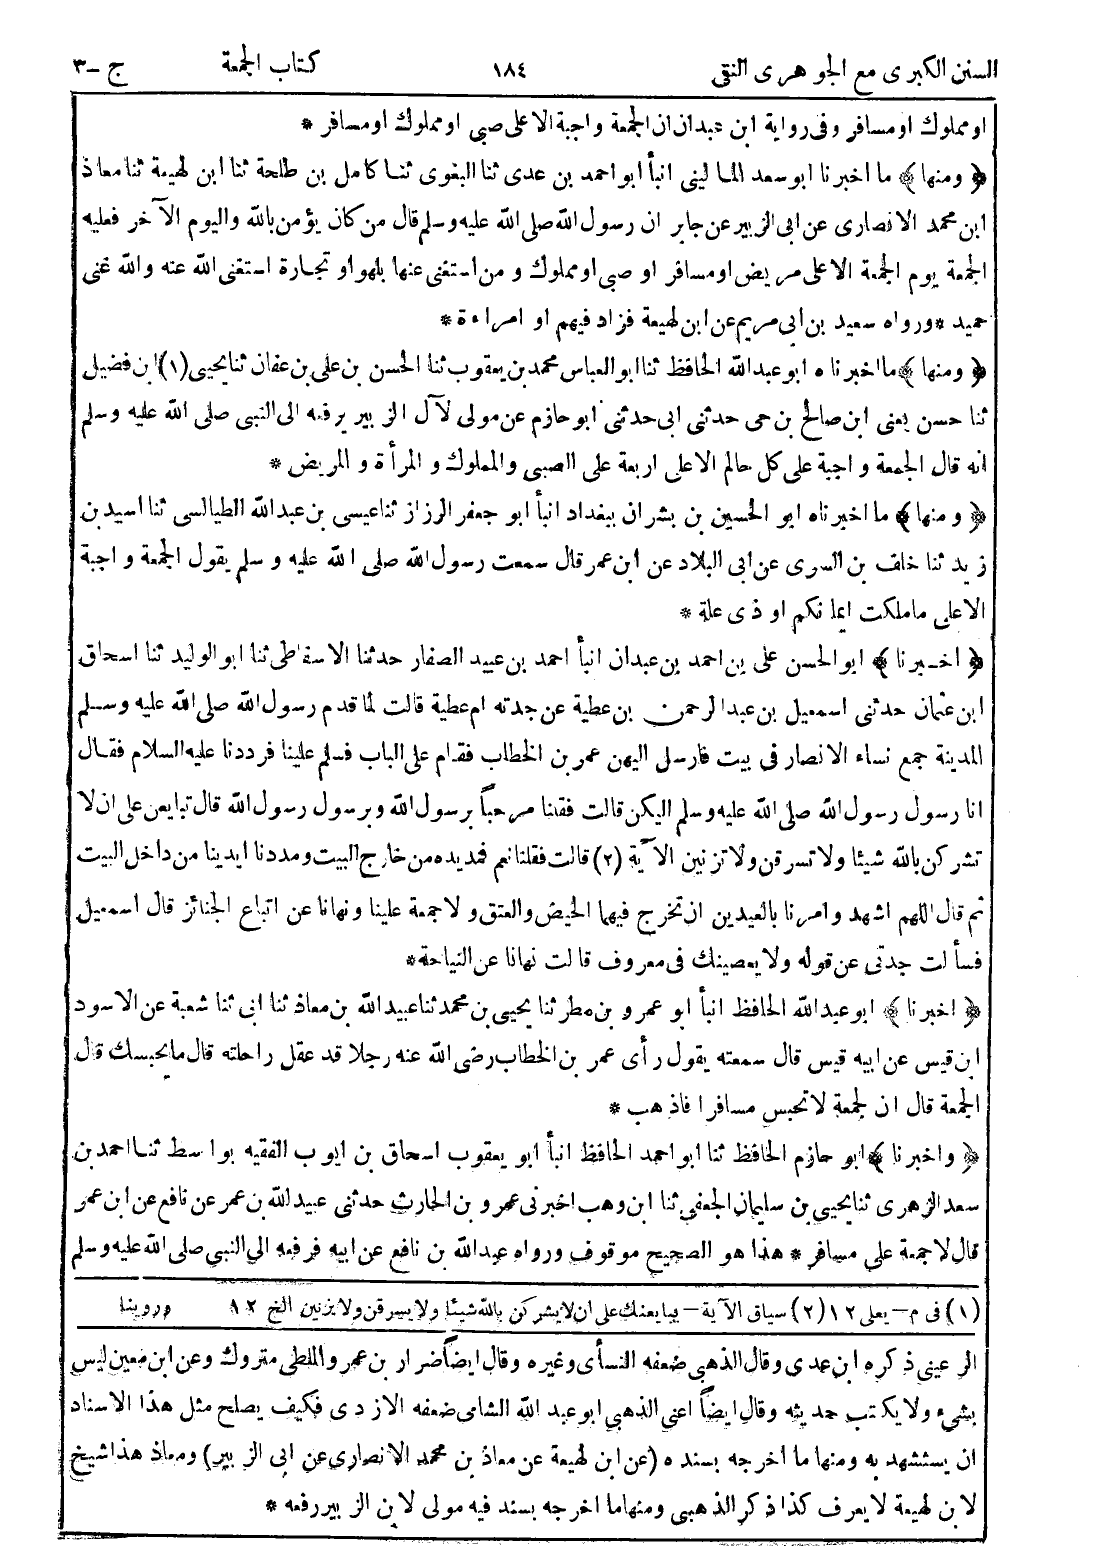 السنن الكبرى مع الجوهرى النقى ١٨٤ كتاب الجمعة ج-٣
او مملوك او مسافر وفى رواية ابن عبدان ان الجمعة واجبة الا على صبى او مملوك او مسافر *
﴿ ومنها ﴾ ما اخبرنا ابو سعد المالينى انبأ ابو احمد بن عدى ثنا البغوى ثنا كامل بن طلحة ثنا ابن لهيعة ثنا معاذ
ابن محمد الانصارى عن ابى الزبير عن جابر ان رسول الله صلى الله عليه وسلم قال من كان يؤمن بالله واليوم الآخر فعليه
الجمعة يوم الجمعة الا على مريض او مسافر او صبى او مملوك و من استغنى عنها بلهو او تجارة استغنى الله عنه والله غنى
حميد * ورواه سعيد بن ابى مريم عن ابن لهيعة فزاد فيهم او امراءة *
﴿ ومنها ﴾ ما اخبرناه ابو عبد الله الحافظ ثنا ابو العباس محمد بن يعقوب ثنا الحسن بن على بن عفان ثنا يحيى (١) ابن فضيل
ثنا حسن يعنى ابن صالح بن حى حدثنى ابى حدثنى ابو حازم عن مولى لآل الزبير يرفعه الى النبى صلى الله عليه وسلم
انه قال الجمعة واجبة على كل حالم الا على اربعة على الصبى والمملوك و المرأة و المريض *
﴿ ومنها ﴾ ما اخبرناه ابو الحسين بن بشران ببغداد انبأ ابو جعفر الرزاز ثنا عيسى بن عبد الله الطيالسى ثنا اسيد بن
زيد ثنا خلف بن السرى عن ابى البلاد عن ابن عمر قال سمعت رسول الله صلى الله عليه و سلم يقول الجمعة واجبة
الا على ما ملكت ايمانكم او ذى علة *
﴿ اخبرنا ﴾ ابو الحسن على بن احمد بن عبدان انبأ احمد بن عبيد الصفار حدثنا الاسفاطى ثنا ابو الوليد ثنا اسحاق
ابن عثمان حدثنى اسمعيل بن عبد الرحمن بن عطية عن جدته ام عطية قالت لما قدم رسول الله صلى الله عليه وسلم
المدينة جمع نساء الانصار فى بيت فارسل اليهن عمر بن الخطاب فقام على الباب فسلم علينا فرددنا عليه السلام فقال
انا رسول رسول الله صلى الله عليه وسلم اليكن قالت فقلنا مرحباً برسول الله وبرسول رسول الله قال تبايعن على ان لا
تشركن بالله شيئا ولا تسرقن ولا تزنين الآية (٢) قالت فقلنا نعم فمد يده من خارج البيت ومددنا ايدينا من داخل البيت
ثم قال اللهم اشهد وامرنا بالعيدين ان تخرج فيهما الحيض والعتق و لا جمعة علينا ونهانا عن اتباع الجنائز قال اسمعيل
فسألت جدتى عن قوله ولا يعصينك فى معروف قالت نهانا عن النياحة *
﴿ اخبرنا ﴾ ابو عبد الله الحافظ انبأ ابو عمرو بن مطر ثنا يحيى بن محمد ثنا عبيد الله بن معاذ ثنا ابى ثنا شعبة عن الاسود
ابن قيس عن ابيه قيس قال سمعته يقول رأى عمر بن الخطاب رضى الله عنه رجلا قد عقل راحلته قال ما يحبسك قال
الجمعة قال ان لجمعة لا تحبس مسافرا فاذهب *
﴿ واخبرنا ﴾ ابو حازم الحافظ ثنا ابو احمد الحافظ انبأ ابو يعقوب اسحاق بن ايوب الفقيه بواسط ثنا احمد بن
سعد الزهرى ثنا يحيى بن سليمان الجعفى ثنا ابن وهب اخبرنى عمرو بن الحارث حدثنى عبيد الله بن عمر عن نافع عن ابن عمر
قال لا جمعة على مسافر * هذا هو الصحيح موقوف ورواه عبد الله بن نافع عن ابيه فرفعه الى النبى صلى الله عليه وسلم
(١) فى م – يعلى ١٢ (٢) سياق الآية – يبايعنك على ان لا يشركن بالله شيئا ولا يسرقن ولا يزنين الخ ١٢ وروينا
الرعينى ذكره ابن عدى وقال الذهبى ضعفه النسأى وغيره وقال ايضاً ضرار بن عمرو الملطى متروك وعن ابن معين ليس
بشىء ولا يكتب حديثه وقال ايضاً اعنى الذهبى ابو عبد الله الشامى ضعفه الازدى فكيف يصلح مثل هذا الاسناد
ان يستشهد به ومنها ما اخرجه بسنده (عن ابن لهيعة عن معاذ بن محمد الانصارى عن ابى الزبير) ومعاذ هذا شيخ
لابن لهيعة لا يعرف كذا ذكر الذهبى ومنها ما اخرجه بسند فيه مولى لابن الزبير رفعه *